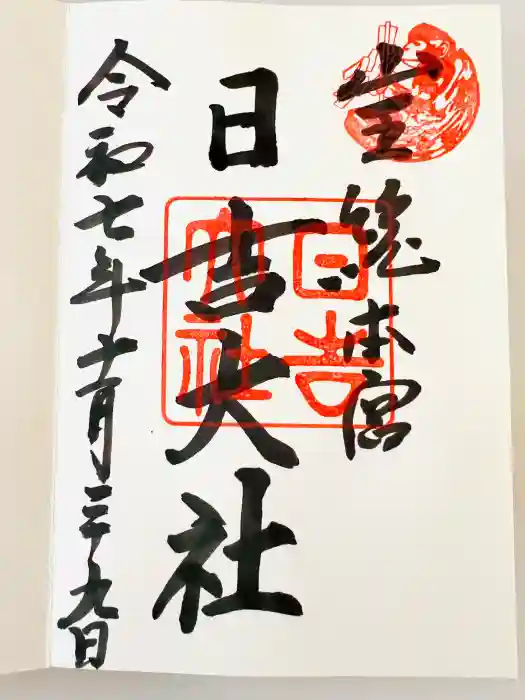 山王総本宮
日吉大社
令和七年十一月二十九日
日吉
大社